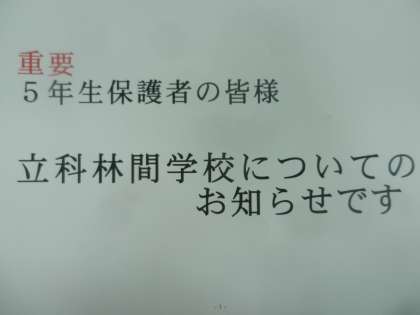 重要
５年生保護者の皆様
立科林間学校についての
お知らせです
- 1 -